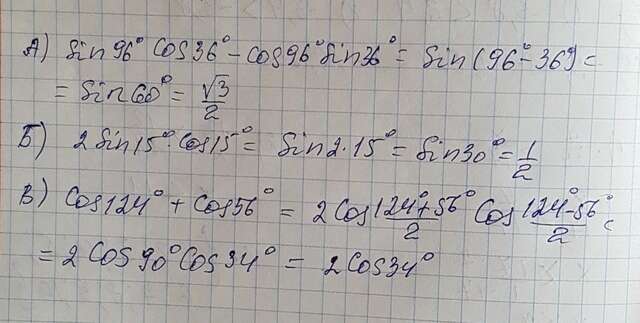 А) sin96° cos36° - cos96° sin36° = sin(96° - 36°) =
= sin60° = √3/2
Б) 2sin15°·cos15° = sin2·15° = sin30° = 1/2
В) cos124° + cos56° = 2cos (124°+56°)/2 cos (124°-56°)/2 =
= 2cos90°cos34° = 2cos34°